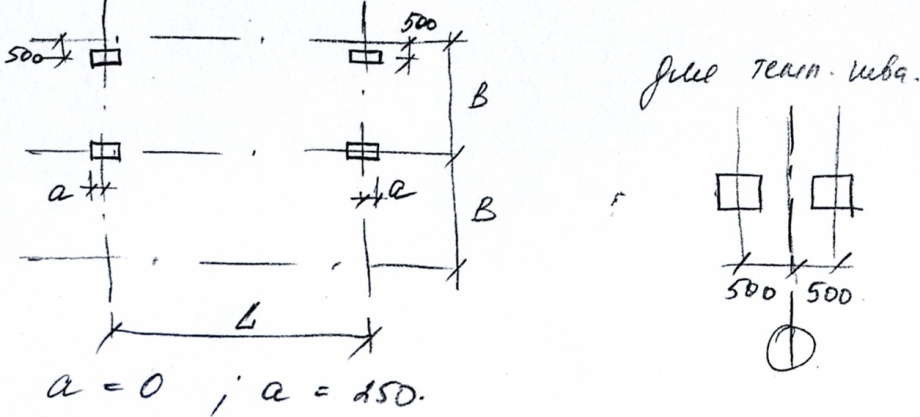 500
500
B
для темп. шва.
a
a
B
500 500
L
a = 0 ; a = 250.